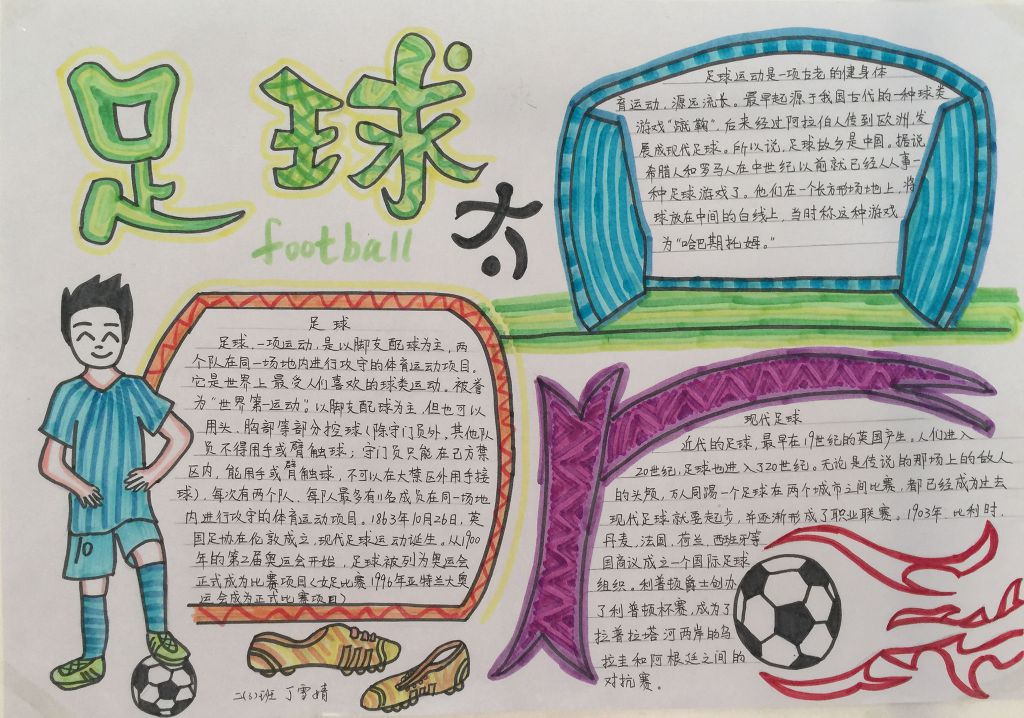 足球
football
足球运动是一项古老的健身体
育运动,源远流长。最早起源于我国古代的一种球类
游戏“蹴鞠”,后来经过阿拉伯人传到欧洲,发
展成现代足球。所以说,足球故乡是中国。据说,
希腊人和罗马人在中世纪以前就已经从事一
种足球游戏了。他们在一个长方形场地上,将
球放在中间的白线上,当时称这种游戏
为“哈巴斯托姆。”
足球
足球,一项运动,是以脚支配球为主,两
个队在同一场地内进行攻守的体育运动项目。
它是世界上最受人们喜欢的球类运动。被誉
为“世界第一运动”。以脚支配球为主,但也可以
用头、胸部等部分控球(除守门员外,其他队
员不得用手或臂触球;守门员只能在己方禁
区内,能用手或臂触球,不可以在大禁区外用手接
球),每次有两个队、每队最多有11名成员在同一场地
内进行攻守的体育运动项目。1863年10月26日,英
国足协在伦敦成立,现代足球运动诞生。从1900
年的第2届奥运会开始,足球被列为奥运会
正式成为比赛项目(女足比赛1996年亚特兰大奥
运会成为正式比赛项目)
现代足球
近代的足球,最早在19世纪的英国产生,人们进入
20世纪,足球也进入320世纪。无论是传说的那场上的敌人
的头颅,万人同踢一个足球在两个城市之间比赛,都已经成为过去
现代足球就要起步,并逐渐形成了职业联赛。1903年,比利时、
丹麦、法国、荷兰、西班牙等
国商议成立一个国际足球
组织。利普顿爵士创办
了利普顿杯赛,成为了
拉普拉塔河两岸的乌
拉圭和阿根廷之间的
对抗赛。
10
二(6)班 丁雪婧